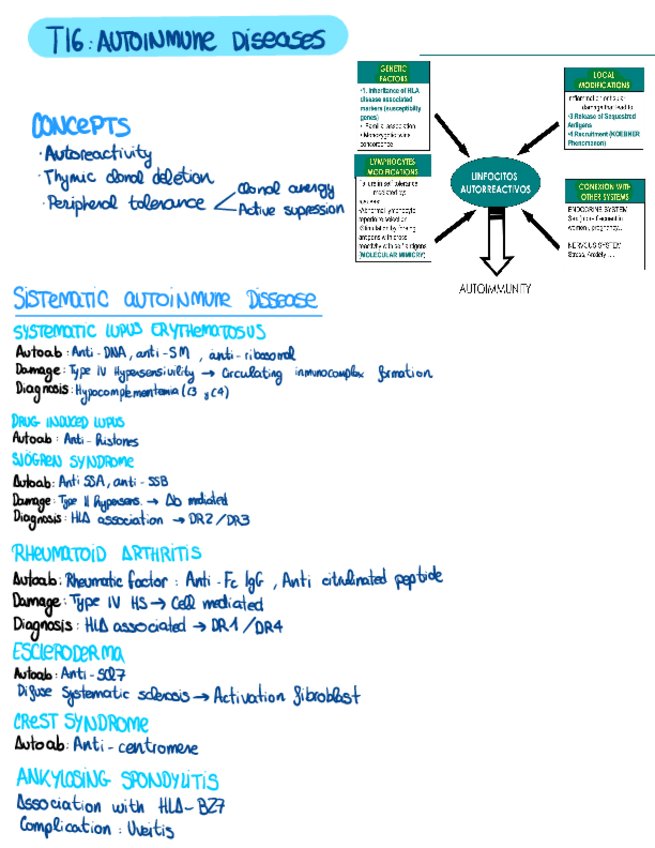 T16: AUTOINMUNE DISEASES
CONCEPTS
· Autoreactivity
· Thymic clonal deletion
· Peripheral tolerance
Clonal anergy
Active supression
GENETIC
FACTORS
•1. Inheritance of HLA
disease associated
markers (susceptibility
genes)
• Familial association
• Monozygotic twins
concordance
LYMPHOCYTES
MODIFICATIONS
Failure in self tolerance
mediated by
•Abnormal lymphocyte
repertoire selection
•Stimulation by foreign
antigens with cross
reactivity with self antigens
(MOLECULAR MIMICRY)
LINFOCITOS
AUTORREACTIVOS
AUTOIMMUNITY
LOCAL
MODIFICATIONS
damage that lead to
•3 Release of Sequestred
Antigens
•4 Recruitment (KOEBNER
Phenomenon)
CONEXION WITH
OTHER SYSTEMS
ENDOCRINE SYSTEM
Sex (more frequent in
women), pregnancy...
NERVOUS SYSTEM
Stress, Anxiety ...
SISTEMATIC AUTOINMUNE DISSEASE
SYSTEMATIC LUPUS ERYTHEMATOSUS
Autoab: Anti-DNA, anti-SM, anti-ribosomal
Damage: Type IV Hypersensivility → Circulating inmunocomplex formation
Diagnosis: Hypocomplementemia (C3 y C4)
DRUG INDUCED LUPUS
Autoab: Anti-Histones
SJÖGREN SYNDROME
Autoab: Anti SSA, anti-SSB
Damage: Type II Hypersens. → Ab mediated
Diagnosis: HLA association → DR2/DR3
RHEUMATOID ARTHRITIS
Autoab: Rheumatic factor: Anti-Fc IgG, Anti citrulinated peptide
Damage: Type IV HS → Cell mediated
Diagnosis: HLA associated → DR1/DR4
ESCLERODERMA
Autoab: Anti-Scl7
Difuse Systematic sclerosis → Activation fibroblast
CREST SYNDROME
Autoab: Anti-centromere
ANKYLOSING SPONDYLITIS
Association with HLA-B27
Complication: Uveitis